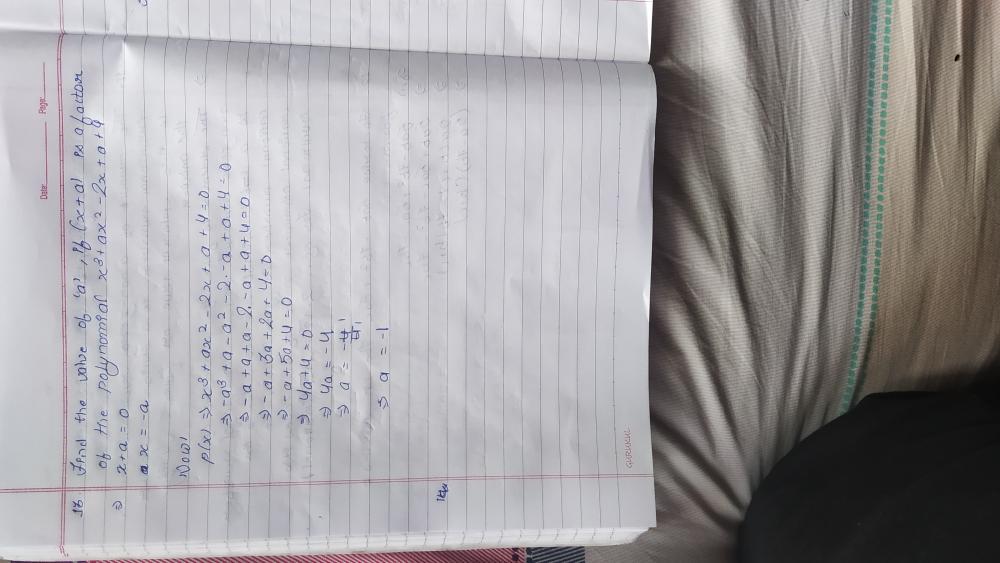 Date: Page:
18. Find the value of 'a', if (x+a) is a factor
of the polynomial x³+ax²-2x+a+4
⇒ x+a=0
x=-a
Now,
p(x) ⇒ x³+ax²-2x+a+4=0
⇒ -a³+a-a²-2·-a+a+4=0
⇒ -a+a+a-2·-a+a+4=0
⇒ -a+3a+2a+4=0
⇒ -a+5a+4=0
⇒ 4a+4=0
⇒ 4a=-4
⇒ a = -4/4 1 1
⇒ a = -1
GURUKUL